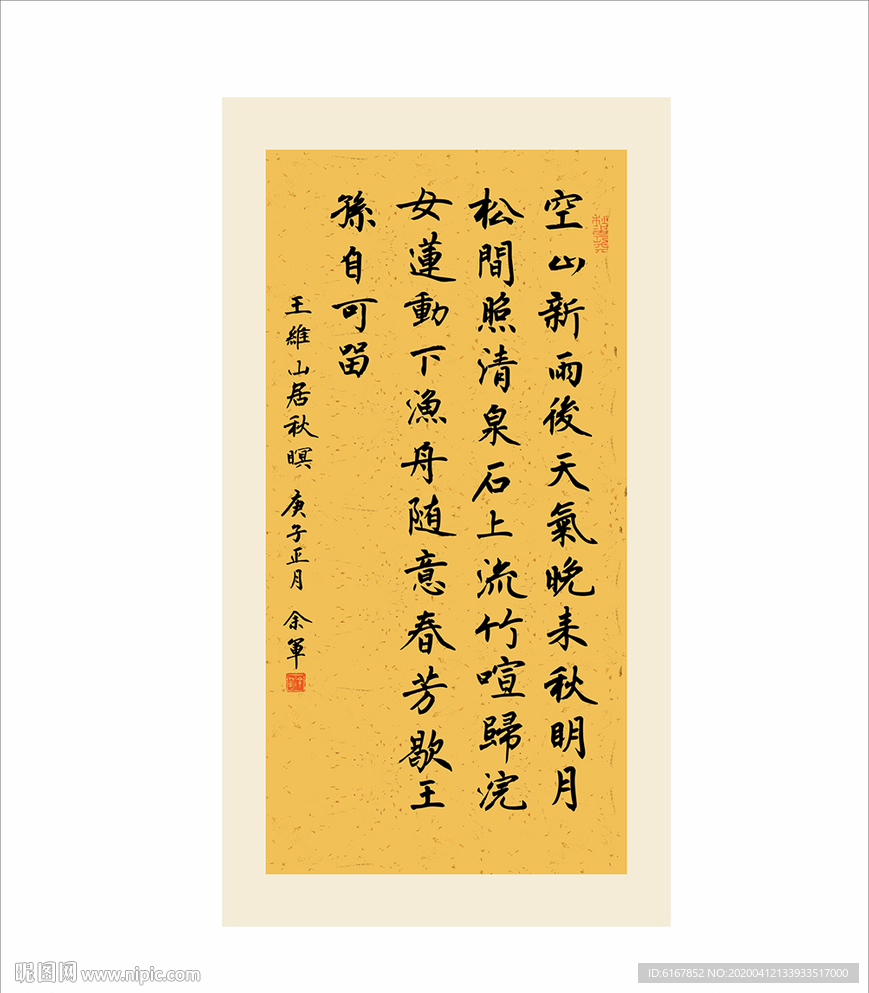 空山新雨後天氣晚来秋明月
松間照清泉石上流竹喧歸浣
女蓮動下漁舟随意春芳歇王
孫自可留
王維山居秋暝 庚子正月 余軍
昵图网 www.nipic.com
ID:6167852 NO:20200412133933517000